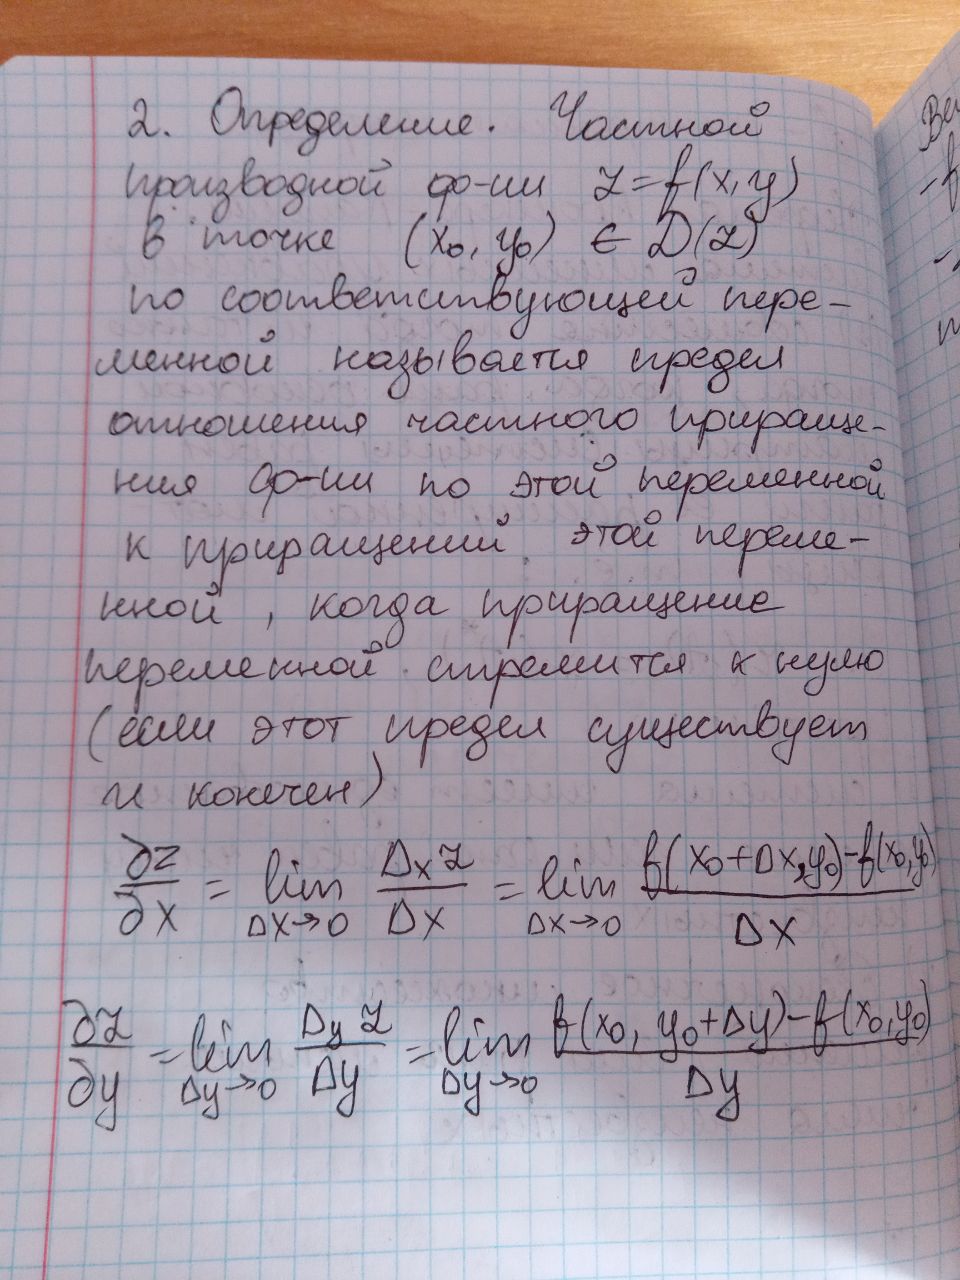 2. Определение. Частной
производной ф-ии z=f(x,y)
в точке (x₀, y₀) ∈ D(z)
по соответствующей пере-
менной называется предел
отношения частного прираще-
ния ф-ии по этой переменной
к приращений этой переме-
нной, когда приращение
переменной стремится к нулю
(если этот предел существует
и конечен)
∂z/∂x = lim Δx→0 Δₓz/Δx = lim Δx→0 (f(x₀+Δx, y₀)-f(x₀,y₀))/Δx
∂z/∂y = lim Δy→0 Δyz/Δy = lim Δy→0 (f(x₀, y₀+Δy)-f(x₀,y₀))/Δy